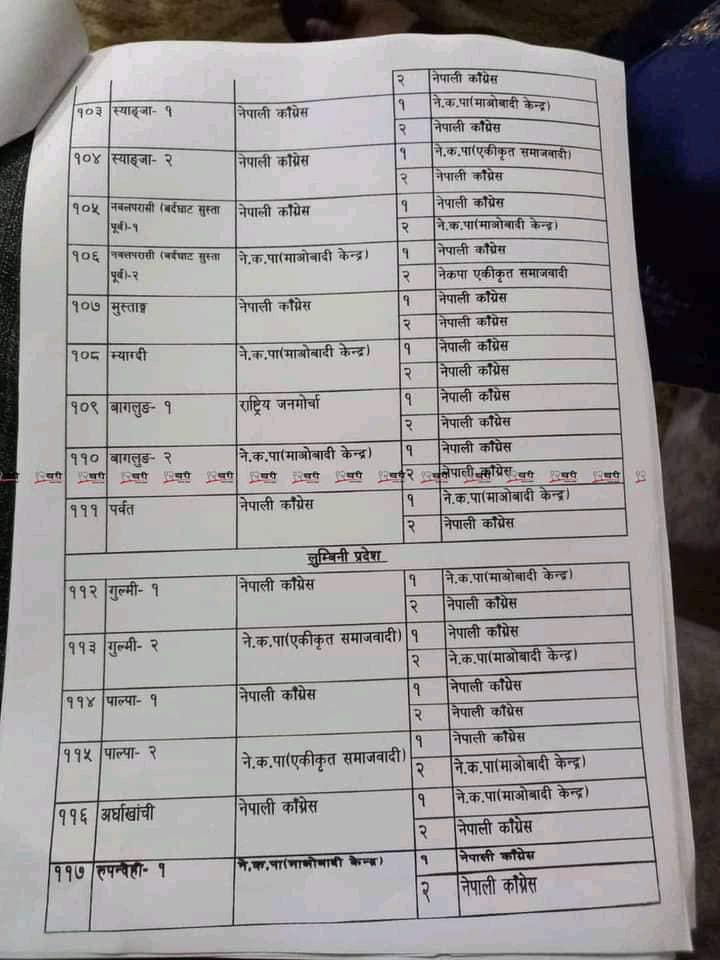 २ नेपाली काँग्रेस
१०३ स्याङ्जा- १ नेपाली काँग्रेस १ ने.क.पा(माओबादी केन्द्र)
२ नेपाली काँग्रेस
१०४ स्याङ्जा- २ नेपाली काँग्रेस १ ने.क.पा(एकीकृत समाजबादी)
२ नेपाली काँग्रेस
१०५ नवलपरासी (बर्दघाट सुस्ता नेपाली काँग्रेस १ नेपाली काँग्रेस
पूर्व)-१ २ ने.क.पा(माओबादी केन्द्र)
१०६ नवलपरासी (बर्दघाट सुस्ता ने.क.पा(माओबादी केन्द्र) १ नेपाली काँग्रेस
पूर्व)-२ २ नेकपा एकीकृत समाजबादी
१०७ मुस्ताङ्ग नेपाली काँग्रेस १ नेपाली काँग्रेस
२ नेपाली काँग्रेस
१०८ म्याग्दी ने.क.पा(माओबादी केन्द्र) १ नेपाली काँग्रेस
२ नेपाली काँग्रेस
१०९ बागलुङ- १ राष्ट्रिय जनमोर्चा १ नेपाली काँग्रेस
२ नेपाली काँग्रेस
११० बागलुङ- २ ने.क.पा(माओबादी केन्द्र) १ नेपाली काँग्रेस
२ नेपाली काँग्रेस
१२घरी १२घरी १२घरी १२घरी १२घरी १२घरी १२घरी १२घरी १२घरी १२घरी १२घरी १२घरी १२घरी १२घरी १२
१११ पर्वत नेपाली काँग्रेस १ ने.क.पा(माओबादी केन्द्र)
२ नेपाली काँग्रेस
लुम्बिनी प्रदेश
११२ गुल्मी- १ नेपाली काँग्रेस १ ने.क.पा(माओबादी केन्द्र)
२ नेपाली काँग्रेस
११३ गुल्मी- २ ने.क.पा(एकीकृत समाजवादी) १ नेपाली काँग्रेस
२ ने.क.पा(माओबादी केन्द्र)
११४ पाल्पा- १ नेपाली काँग्रेस १ नेपाली काँग्रेस
२ नेपाली काँग्रेस
११५ पाल्पा- २ ने.क.पा(एकीकृत समाजवादी) १ नेपाली काँग्रेस
२ ने.क.पा(माओबादी केन्द्र)
११६ अर्घाखांची नेपाली काँग्रेस १ ने.क.पा(माओबादी केन्द्र)
२ नेपाली काँग्रेस
११७ रुपन्देही- १ ने.क.पा(माओबादी केन्द्र) १ नेपाली काँग्रेस
२ नेपाली काँग्रेस